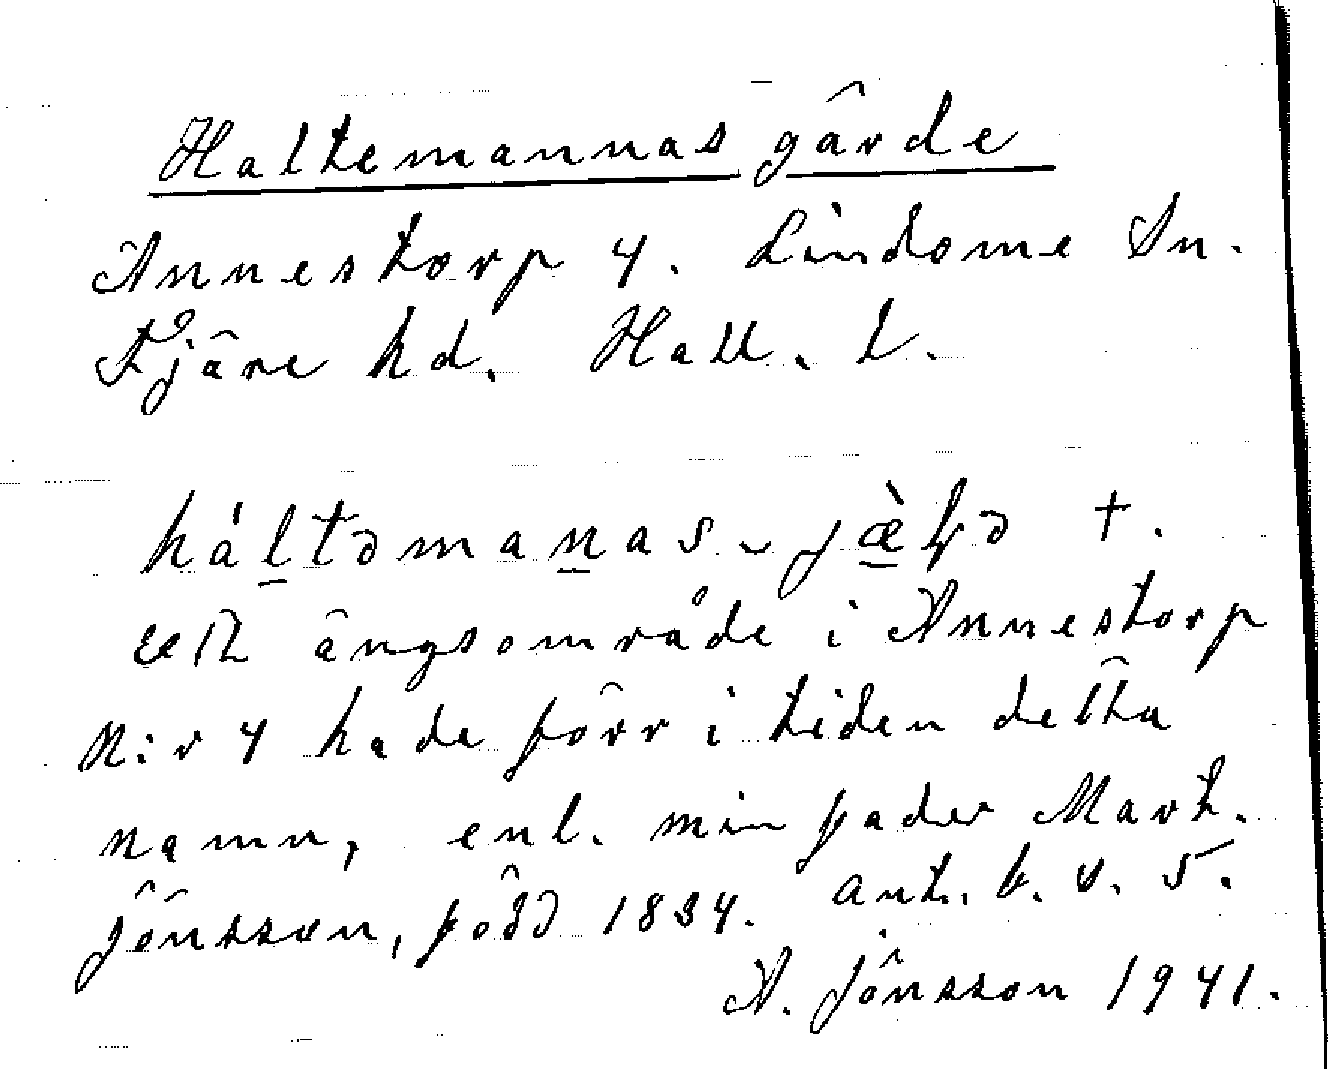 Haltemannas gärde
Annestorp 4. Lindome Sn.
Fjäre hd. Hall. l.
háltəmanas jæ̀ɽə †.
ett ängsområde i Annestorp
N:r 4 hade förr i tiden detta
namn, enl. min fader Mart.
Jönsson, född 1834. ant. b. v. 5.
A. Jönsson 1941.